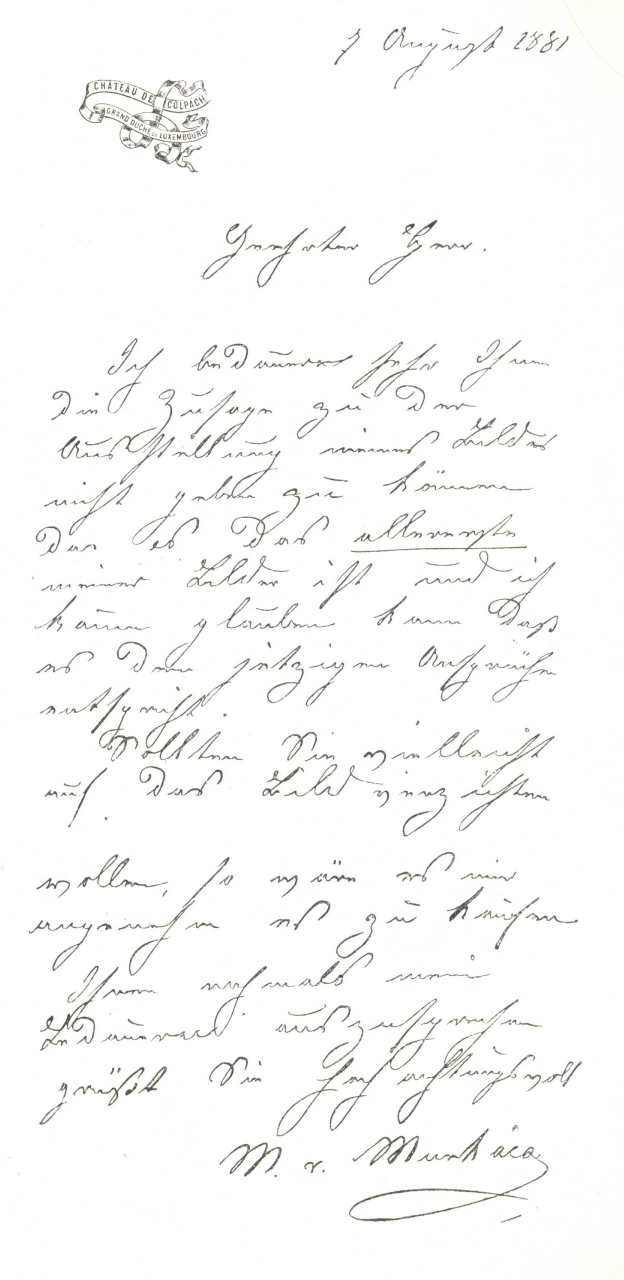 7 August 1881
CHATEAU DE COLPACH
GRAND DUCHÉ DE LUXEMBOURG
Geehrter Herr.
Ich bedauere sehr Ihnen
die Zusage zu der
Ausstellung meines Bildes
nicht geben zu können
da es das allererste
meiner Bilder ist und ich
kaum glauben kann daß
es den jetzigen Ansprüchen
entspricht.
Sollten Sie vielleicht
auf das Bild verzichten
wollen, so wäre es mir
angenehm es zu kaufen
Ihnen nochmals mein
Bedauern auszusprechen
grüßt Sie hochachtungsvoll
M. v. Munkácsy